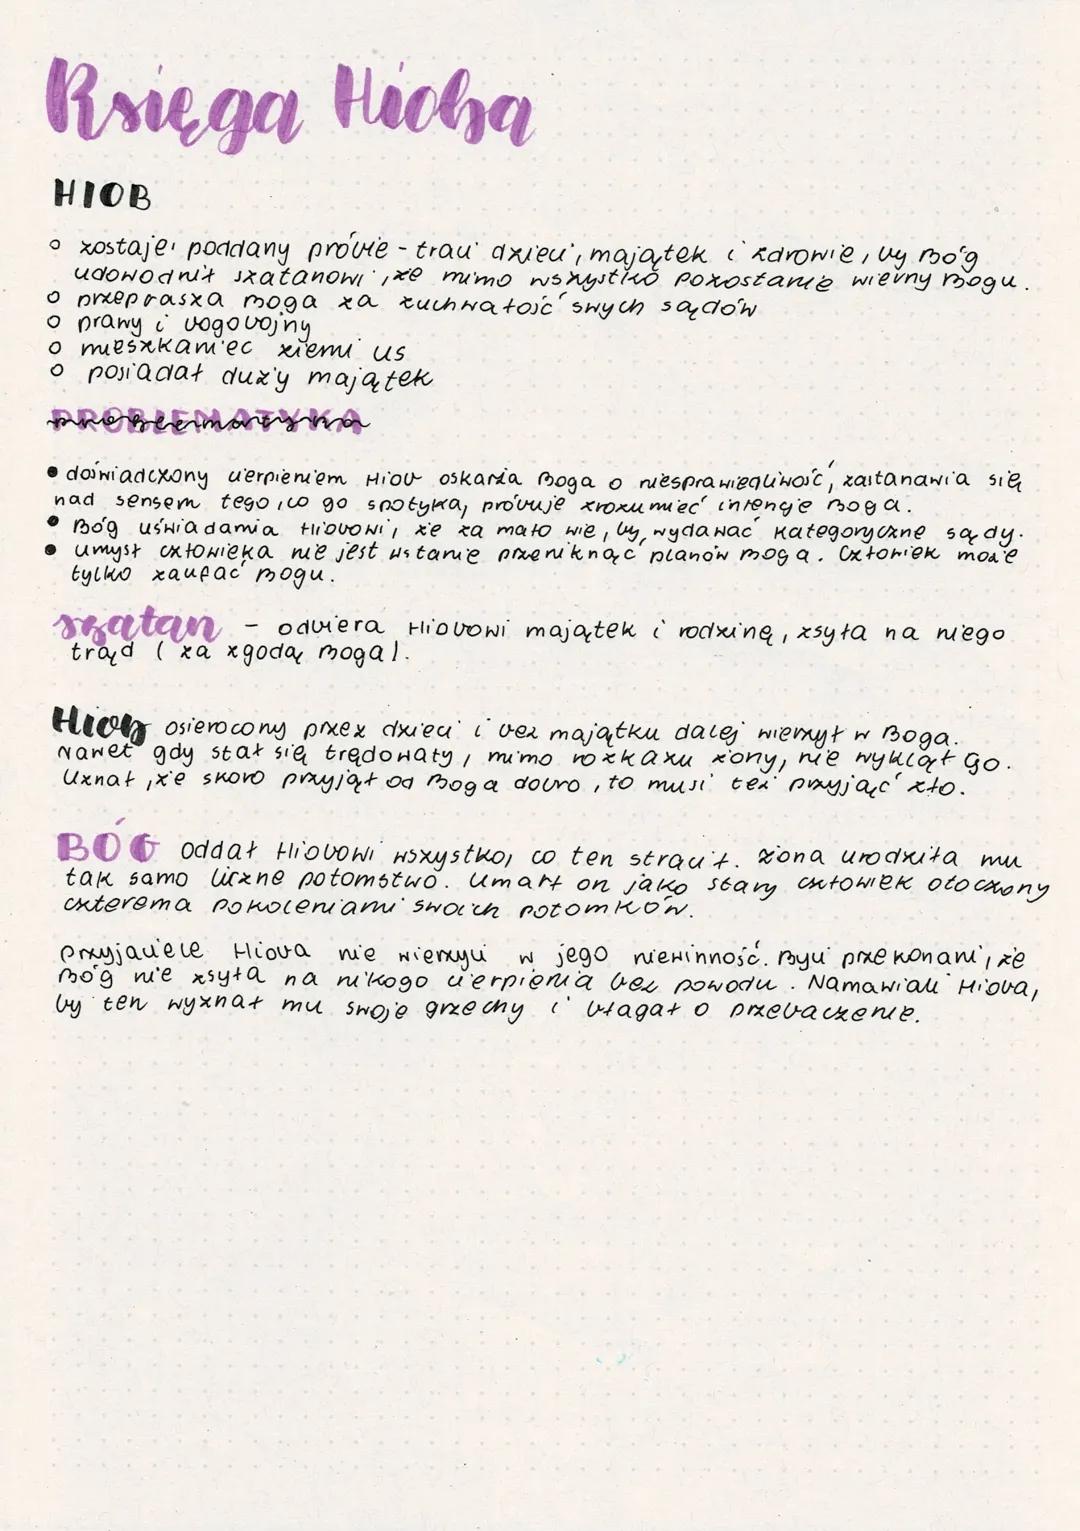 Księga Hioba
HIOB
○ zostaje poddany próbie - traci dzieci, majątek i zdrowie, by Bóg
udowodnił szatanowi, że mimo wszystko pozostanie wierny Bogu.
○ przeprasza Boga za zuchwałość swych sądów
○ prawy i bogobojny
○ mieszkaniec ziemi us
○ posiadał duży majątek
PROBLEMATYKA
problematyka
• doświadczony cierpieniem Hiob oskarża Boga o niesprawiedliwość, zastanawia się
nad sensem tego, co go spotyka, próbuje zrozumieć intencje Boga.
• Bóg uświadamia Hiobowi, że za mało wie, by wydawać kategoryczne sądy.
• umysł człowieka nie jest wstanie przeniknąć planów Boga. Człowiek może
tylko zaufać Bogu.
szatan - odbiera Hiobowi majątek i rodzinę, zsyła na niego
trąd (za zgodą Boga).
Hiob osierocony przez dzieci i bez majątku dalej wierzył w Boga.
Nawet gdy stał się trędowaty, mimo rozkazu żony, nie wyklął Go.
Uznał, że skoro przyjął od Boga dobro, to musi też przyjąć zło.
BÓG oddał Hiobowi wszystko, co ten stracił. Żona urodziła mu
tak samo liczne potomstwo. Umarł on jako stary człowiek otoczony
czterema pokoleniami swoich potomków.
przyjaciele Hioba nie wierzyli w jego niewinność. Byli przekonani, że
Bóg nie zsyła na nikogo cierpienia bez powodu. Namawiali Hioba,
by ten wyznał mu swoje grzechy i błagał o przebaczenie.